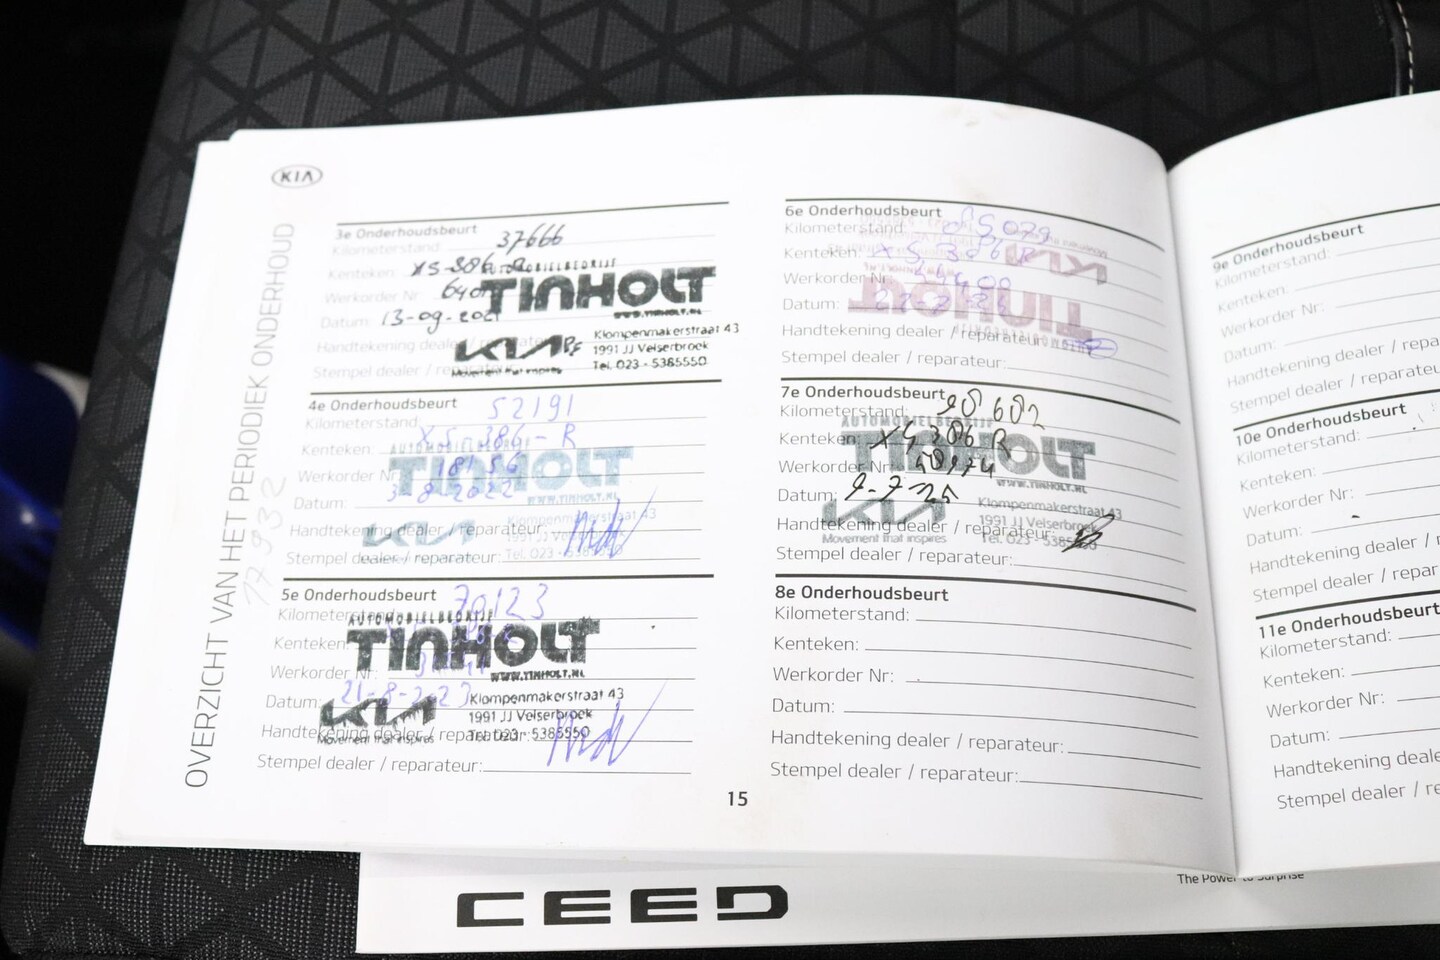 KIA
OVERZICHT VAN HET PERIODIEK ONDERHOUD
3e Onderhoudsbeurt
Kilometerstand 37666
Kenteken: XS-386-R
Werkorder Nr
Datum: 13-09-2021
Handtekening dealer / reparateur
Stempel dealer / reparateur
AUTOMOBIELBEDRIJF
TINHOLT
WWW.TINHOLT.NL
KIA
Movement that inspires
Klompenmakerstraat 43
1991 JJ Velserbroek
Tel. 023 - 5385550
4e Onderhoudsbeurt
Kilometerstand: 52191
Kenteken: XS-386-R
Werkorder Nr: 18156
Datum: 3-8-2022
Handtekening dealer / reparateur:
Stempel dealer / reparateur:
AUTOMOBIELBEDRIJF
TINHOLT
WWW.TINHOLT.NL
KIA
Klompenmakerstraat 43
1991 JJ Velserbroek
Tel. 023 - 5385550
5e Onderhoudsbeurt
Kilometerstand: 70123
Kenteken:
Werkorder Nr:
Datum: 21-8-2023
Handtekening dealer / reparateur:
Stempel dealer / reparateur:
AUTOMOBIELBEDRIJF
TINHOLT
WWW.TINHOLT.NL
KIA
Movement that inspires
Klompenmakerstraat 43
1991 JJ Velserbroek
Tel. 023 - 5385550
6e Onderhoudsbeurt
Kilometerstand:
Kenteken: XS 386 R
Werkorder Nr:
Datum:
Handtekening dealer / reparateur:
Stempel dealer / reparateur:
TINHOLT
KIA
7e Onderhoudsbeurt
Kilometerstand:
Kenteken: XS 386 R
Werkorder Nr:
Datum: 9-7-25
Handtekening dealer / reparateur:
Stempel dealer / reparateur:
AUTOMOBIELBEDRIJF
TINHOLT
WWW.TINHOLT.NL
KIA
Movement that inspires
Klompenmakerstraat 43
1991 JJ Velserbroek
Tel. 023 - 5385550
8e Onderhoudsbeurt
Kilometerstand:
Kenteken:
Werkorder Nr:
Datum:
Handtekening dealer / reparateur:
Stempel dealer / reparateur:
15
9e Onderhoudsbeurt
Kilometerstand:
Kenteken:
Werkorder Nr:
Datum:
Handtekening dealer / repa
Stempel dealer / reparateu
10e Onderhoudsbeurt
Kilometerstand:
Kenteken:
Werkorder Nr:
Datum:
Handtekening dealer / r
Stempel dealer / repar
11e Onderhoudsbeurt
Kilometerstand:
Kenteken:
Werkorder Nr:
Datum:
Handtekening dealer
Stempel dealer / re
The Power to Surprise
CEED